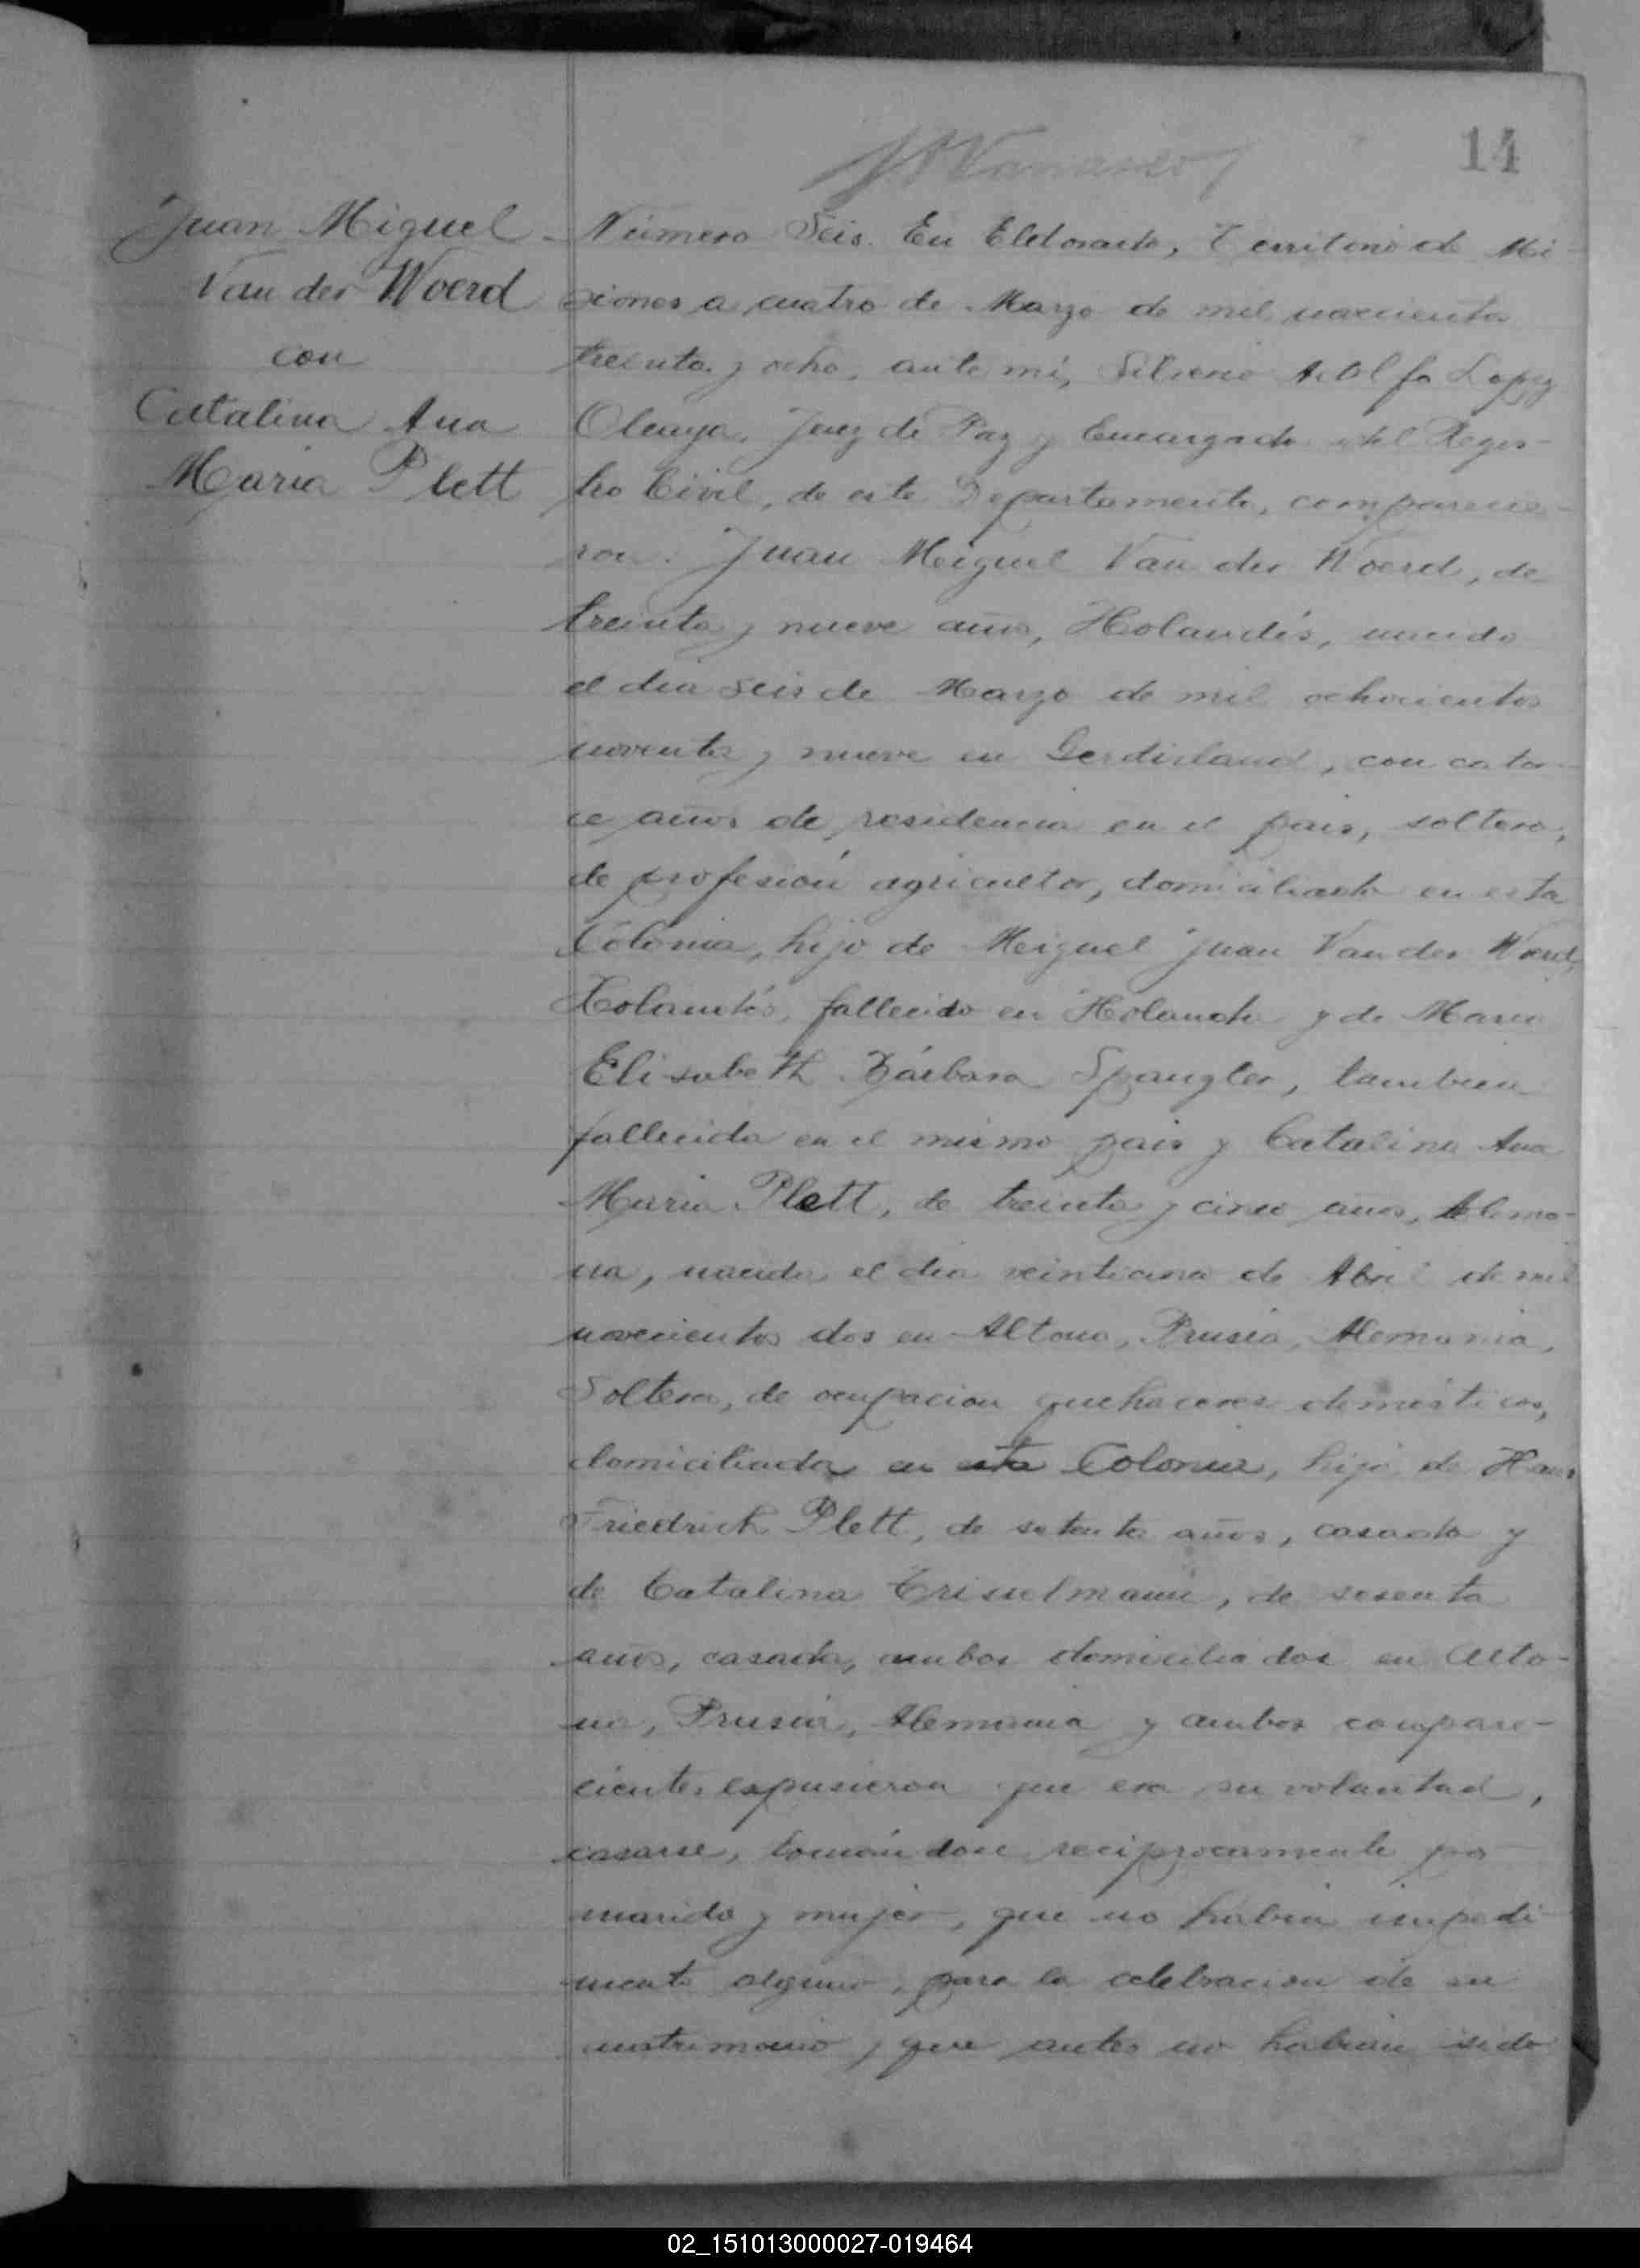 14
Juan Miguel
Van der Woerd
con
Catalina Ana
Maria Plett
Número Seis. En Eldorado, Territorio de Mi-
siones a cuatro de Marzo de mil novecientos
treinta y ocho, ante mí, Silverio Adolfo Lopez
Juez de Paz y Encargado del Regis-
tro Civil, de este Departamento, comparecie-
ron: Juan Miguel Van der Woerd, de
treinta y nueve años, Holandés, nacido
el dia seis de Marzo de mil ochocientos
noventa y nueve en, con cator-
ce años de residencia en el pais, soltero,
de profesión agricultor, domiciliado en esta
Colonia, hijo de Miguel Juan Van der Woerd,
Holandés, fallecido en Holanda y de Maria
Elisabeth Bárbara Spangler, tambien
fallecida en el mismo pais y Catalina Ana
Maria Plett, de treinta y cinco años, Alema-
na, nacida el dia de Abril de mil
novecientos dos en Altona, Prusia, Alemania,
Soltera, de ocupacion quehaceres domésticos,
domiciliada en esta Colonia, hija de Hans
Friedrich Plett, de setenta años, casado y
de Catalina, de sesenta
años, casada, ambos domiciliados en Alto-
na, Prusia, Alemania y ambos compare-
cientes expusieron que era su voluntad,
casarse, tomándose reciprocamente por
marido y mujer, que no habia impedi-
mento alguno, para la celebracion de su
matrimonio y que antes no habian sido
02_151013000027-019464